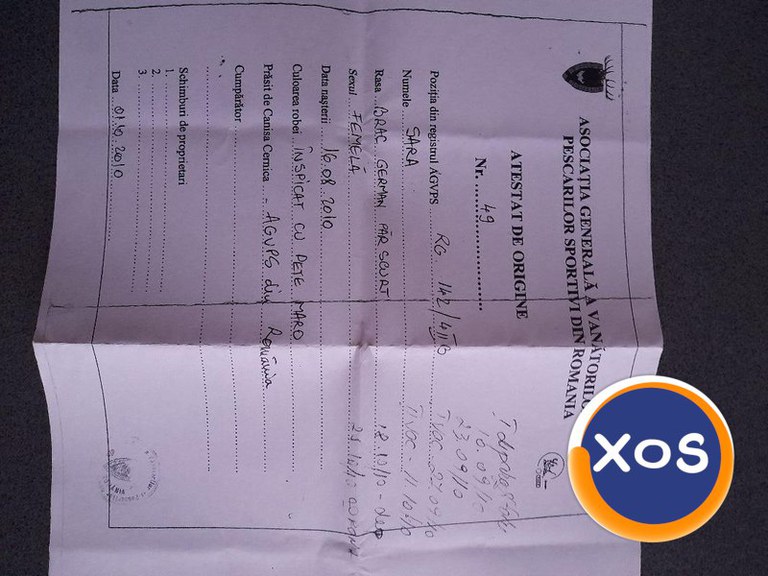 ASOCIAŢIA GENERALĂ A VANĂTORILOR
PESCARILOR SPORTIVI DIN ROMANIA
ATESTAT DE ORIGINE
Nr. 49
Poziţia din registrul AGVPS RG 142/411B
Numele SARA
Rasa BRAC GERMAN PĂR SCURT
Sexul FEMELĂ
Data naşterii 16.08.2010
Culoarea robei ÎNSPICAT CU PETE MARO
Prăsit de Canisa Cernica - AGVPS din România
Cumpărător
Schimburi de proprietari
1.
2.
3.
Data 01.10.2010
16.09/10
23.09/10
11.10/10
18.10/10
XOS